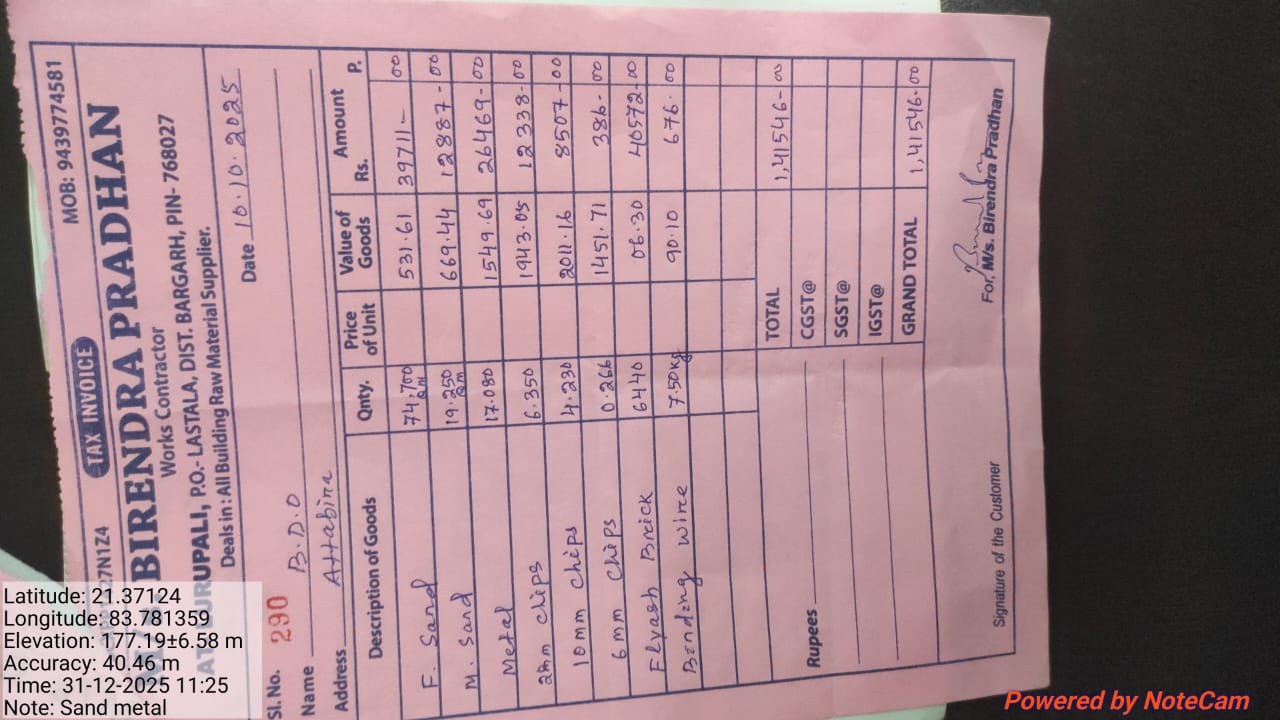 TAX INVOICE
MOB: 9439774581
27N1Z4
BIRENDRA PRADHAN
Works Contractor
AT- URUPALI, P.O.- LASTALA, DIST. BARGARH, PIN- 768027
Deals in : All Building Raw Material Supplier.
Sl. No. 290 Date 10.10.2025
Name B.D.O
Address Attabira
Description of Goods Qnty. Price of Unit Value of Goods Amount Rs. P.
F. Sand 74,700 531.61 39711- 00
M. Sand 19.250 669.44 12887-00
Metal 17.080 1549.69 26469-00
2mm chips 6.350 1943.05 12338-00
10mm chips 4.230 2011.16 8507-00
6mm chips 0.266 1451.71 386-00
Flyash Brick 6440 06.30 40572-00
Binding wire 7.50kg 90.10 676.00
TOTAL 1,41546-00
CGST@
SGST@
IGST@
Rupees
GRAND TOTAL 1,41546-00
Signature of the Customer
For, M/s. Birendra Pradhan
Latitude: 21.37124
Longitude: 83.781359
Elevation: 177.19±6.58 m
Accuracy: 40.46 m
Time: 31-12-2025 11:25
Note: Sand metal
Powered by NoteCam